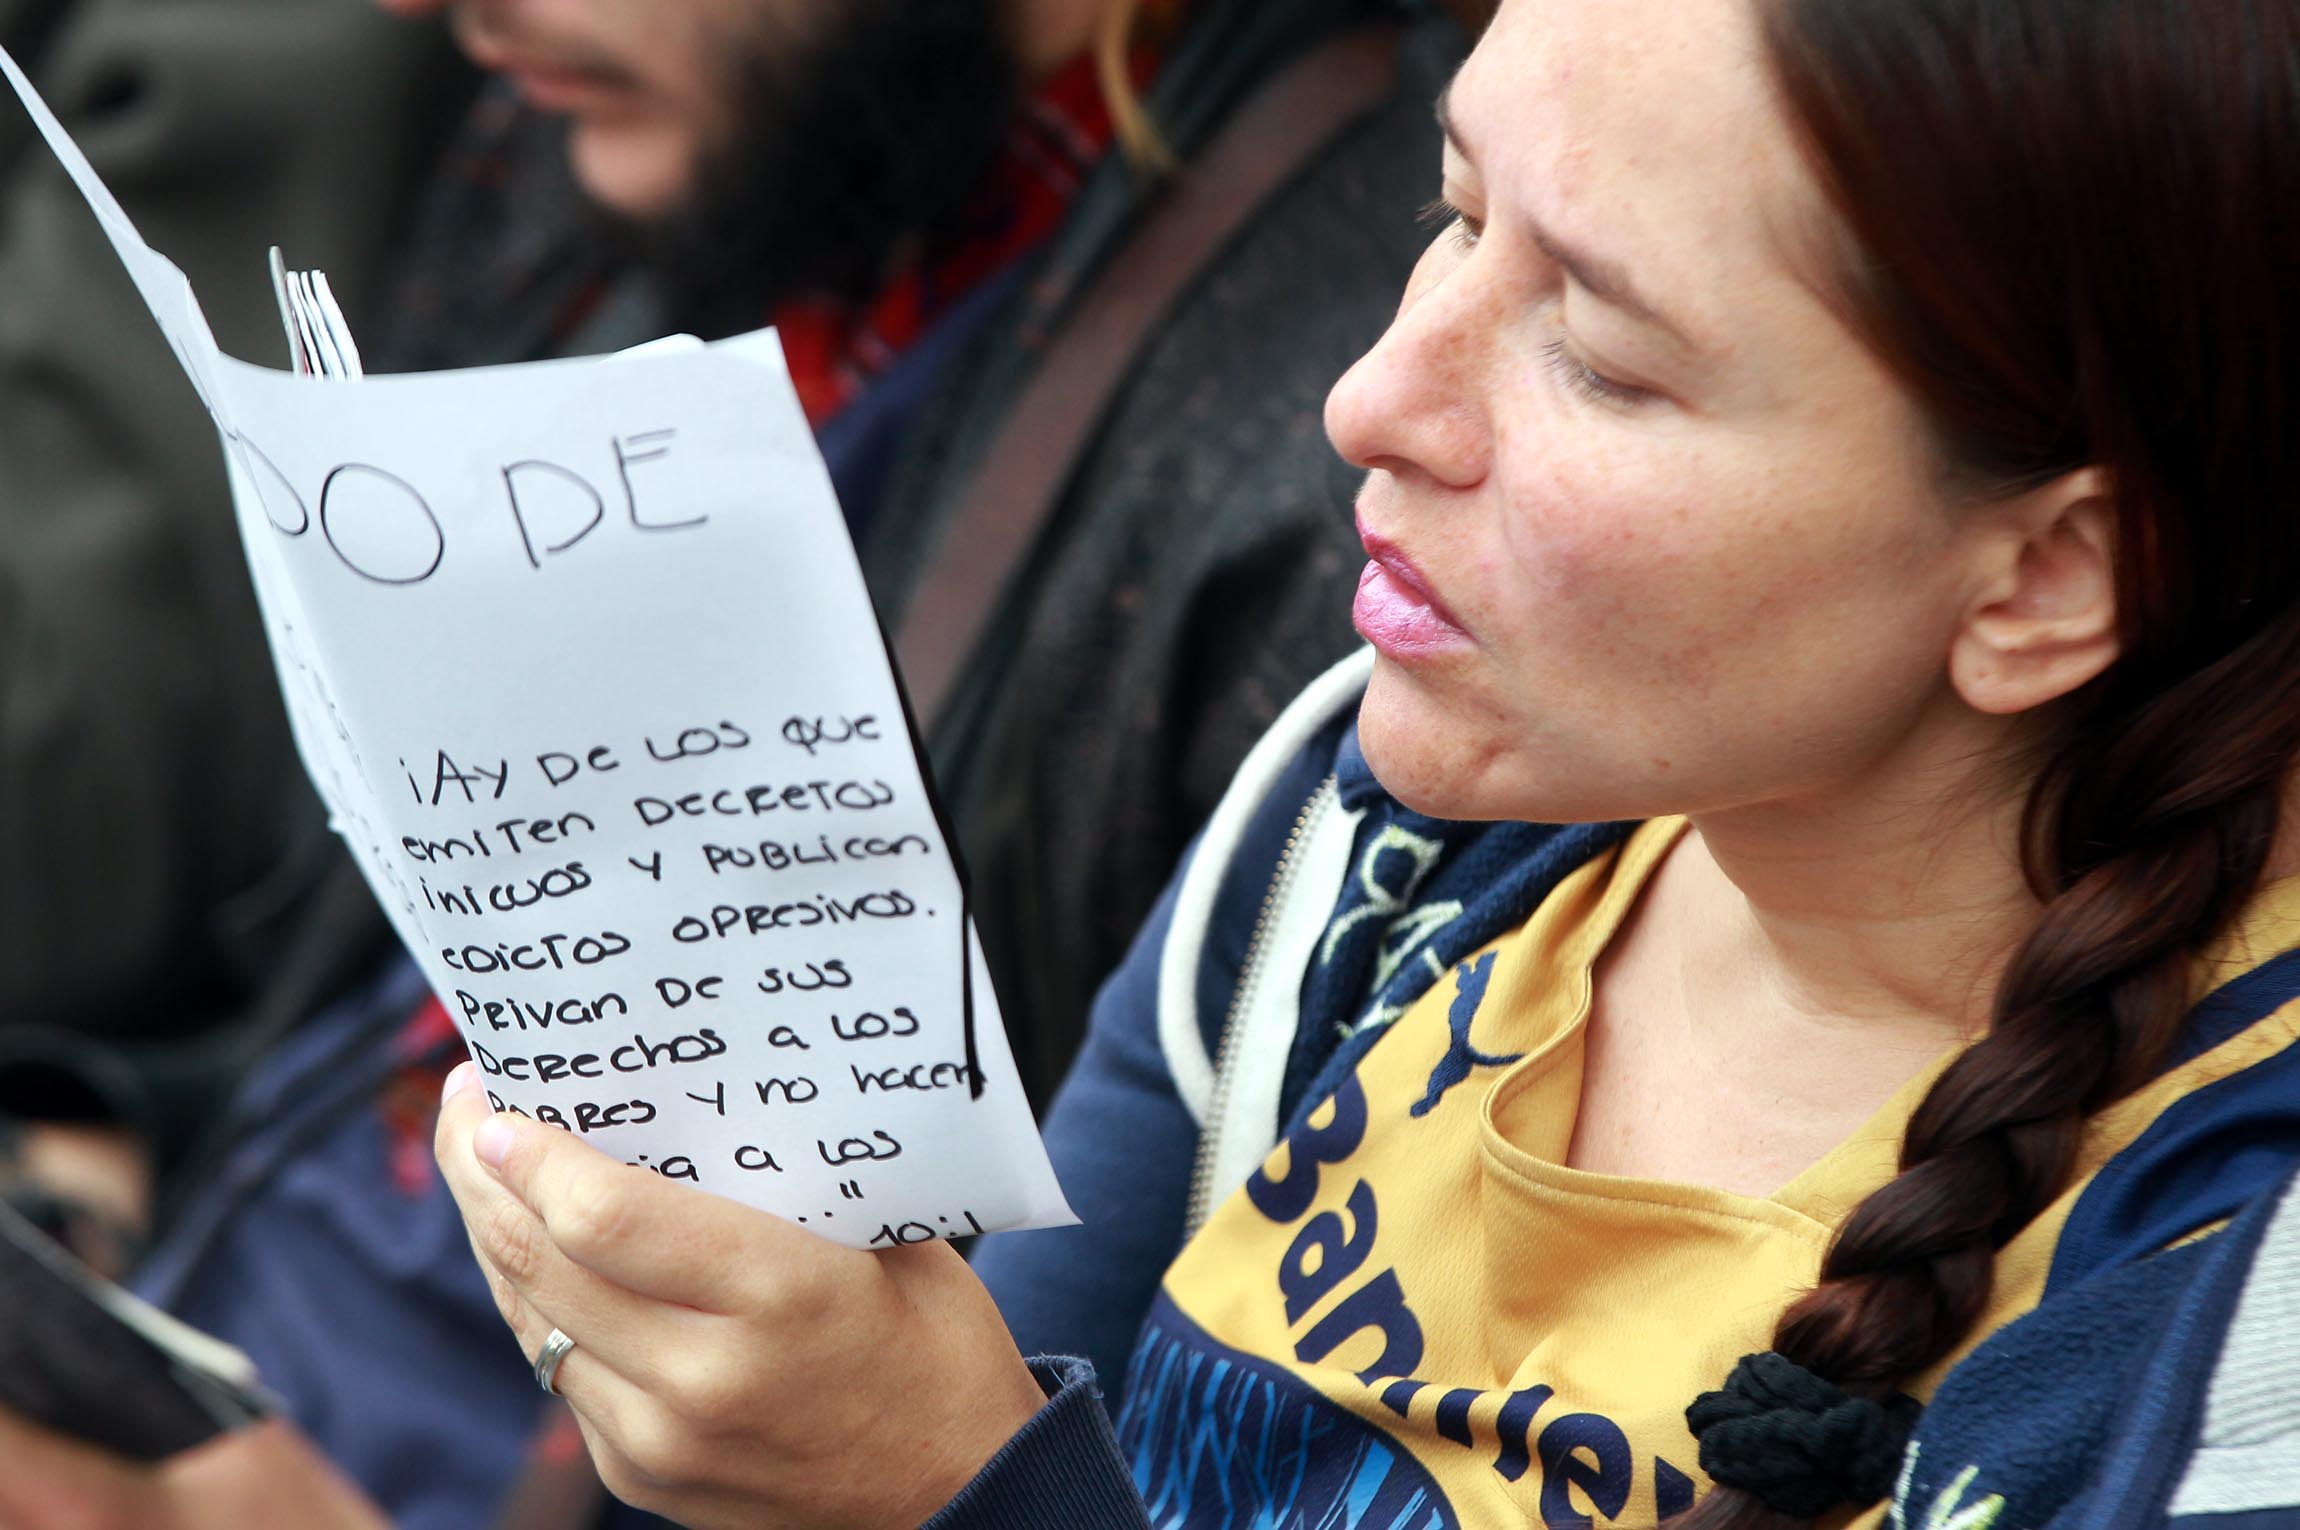 DO DE
¡AY DE LOS QUE
emiTen DECRETOS
INICUOS Y PUBLICAN
eDICTOS OPRESIVOS.
PRIVAN DE SUS
DERECHOS a LOS
POBRES Y no hacen
a LOS
"
10:1
Banme